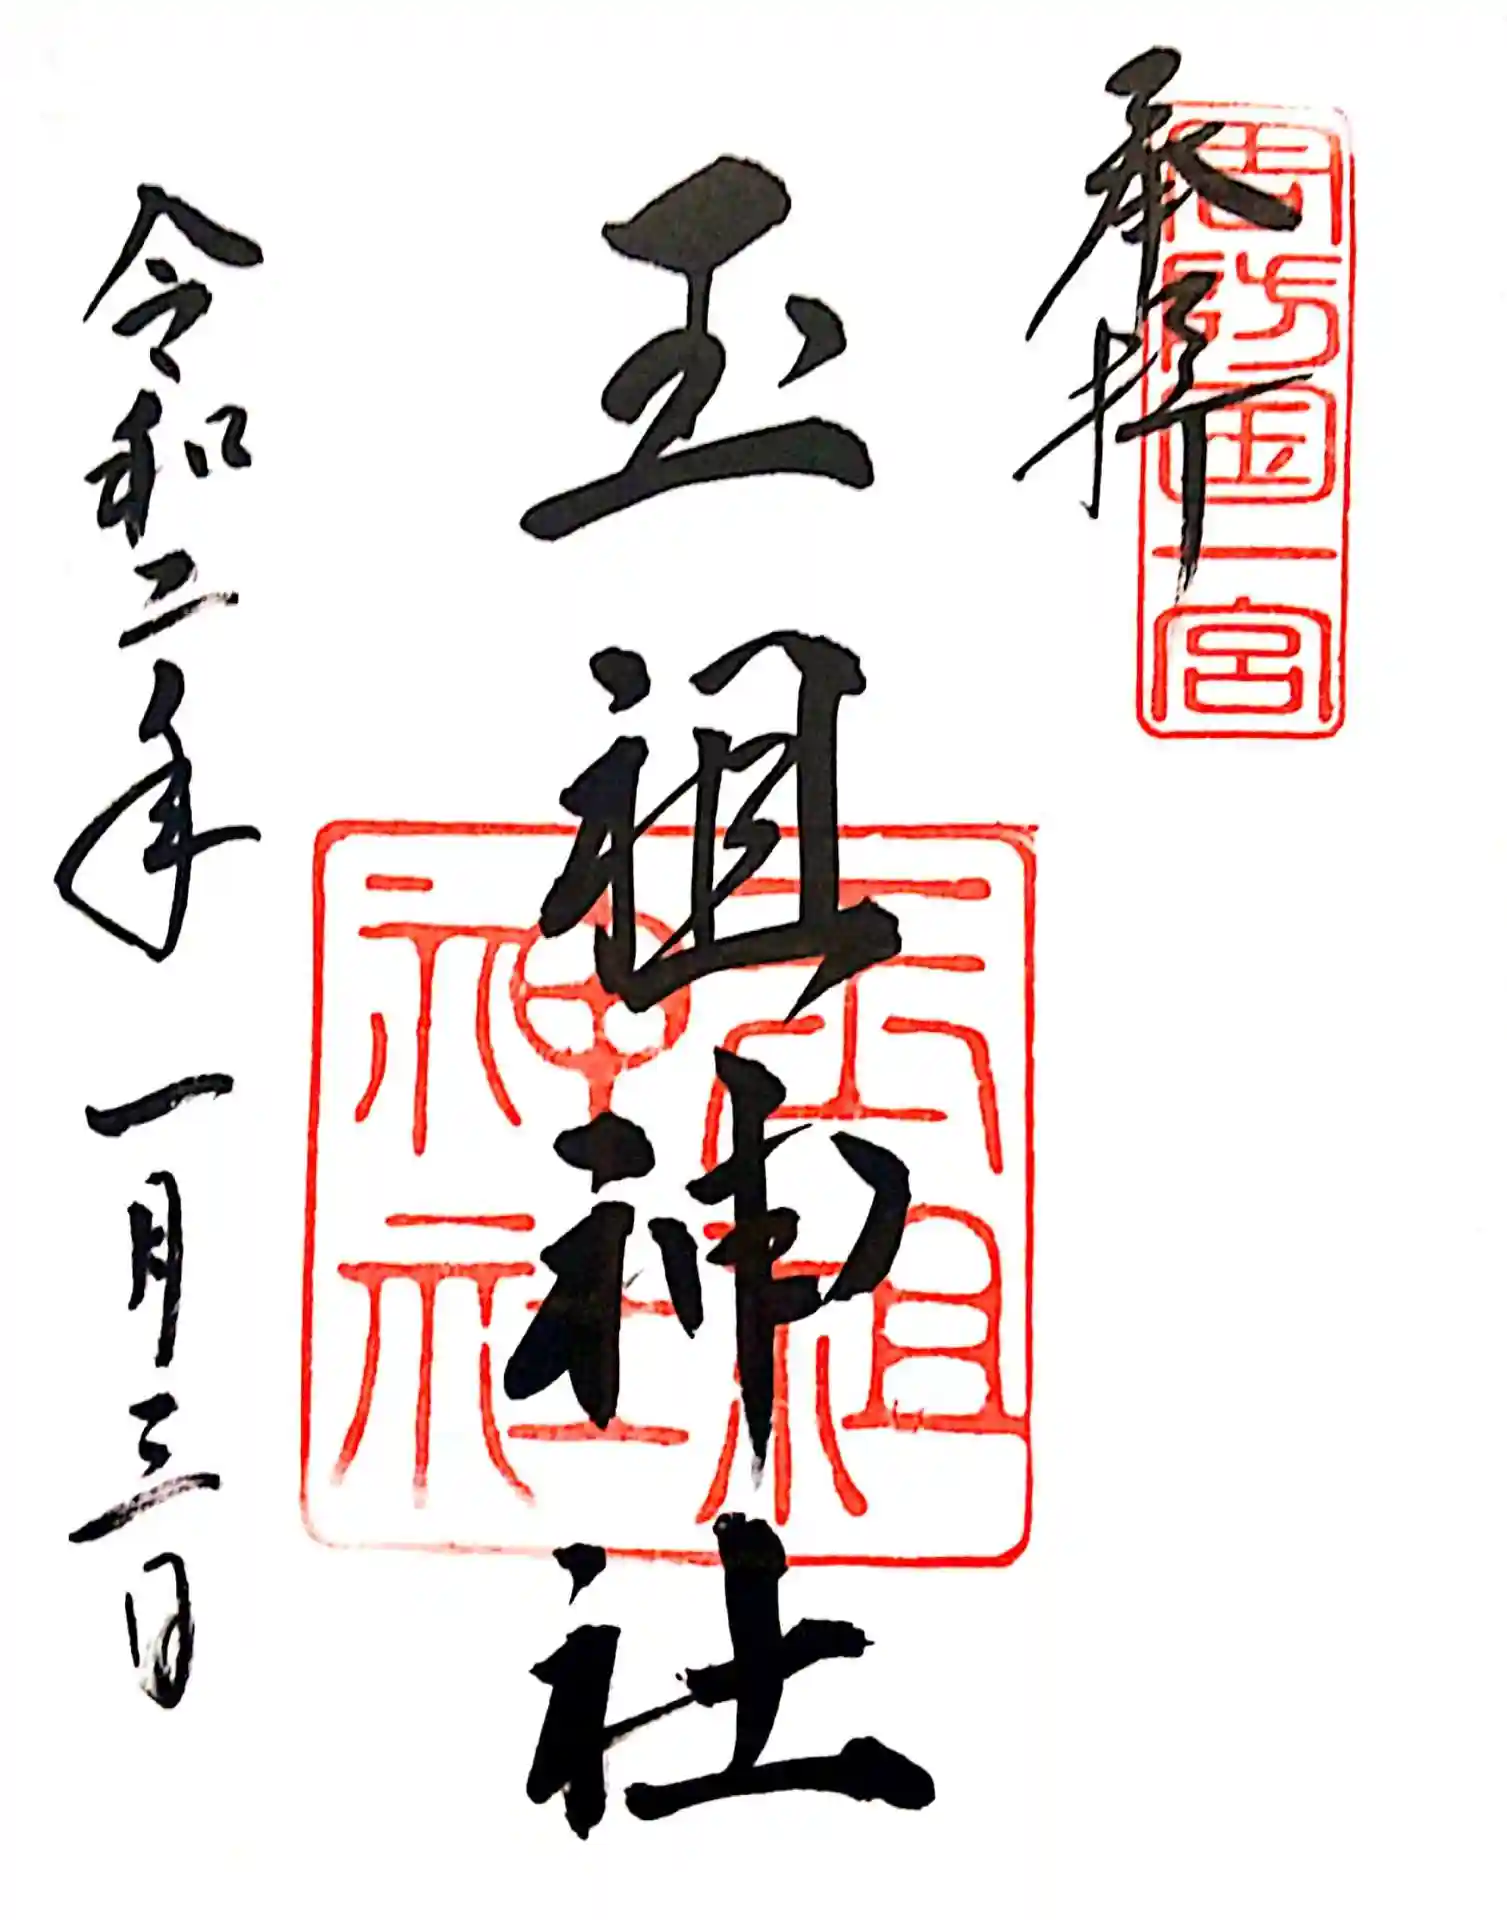 奉拝
周防国一宮
玉祖神社
玉祖
神社
令和二年一月三日